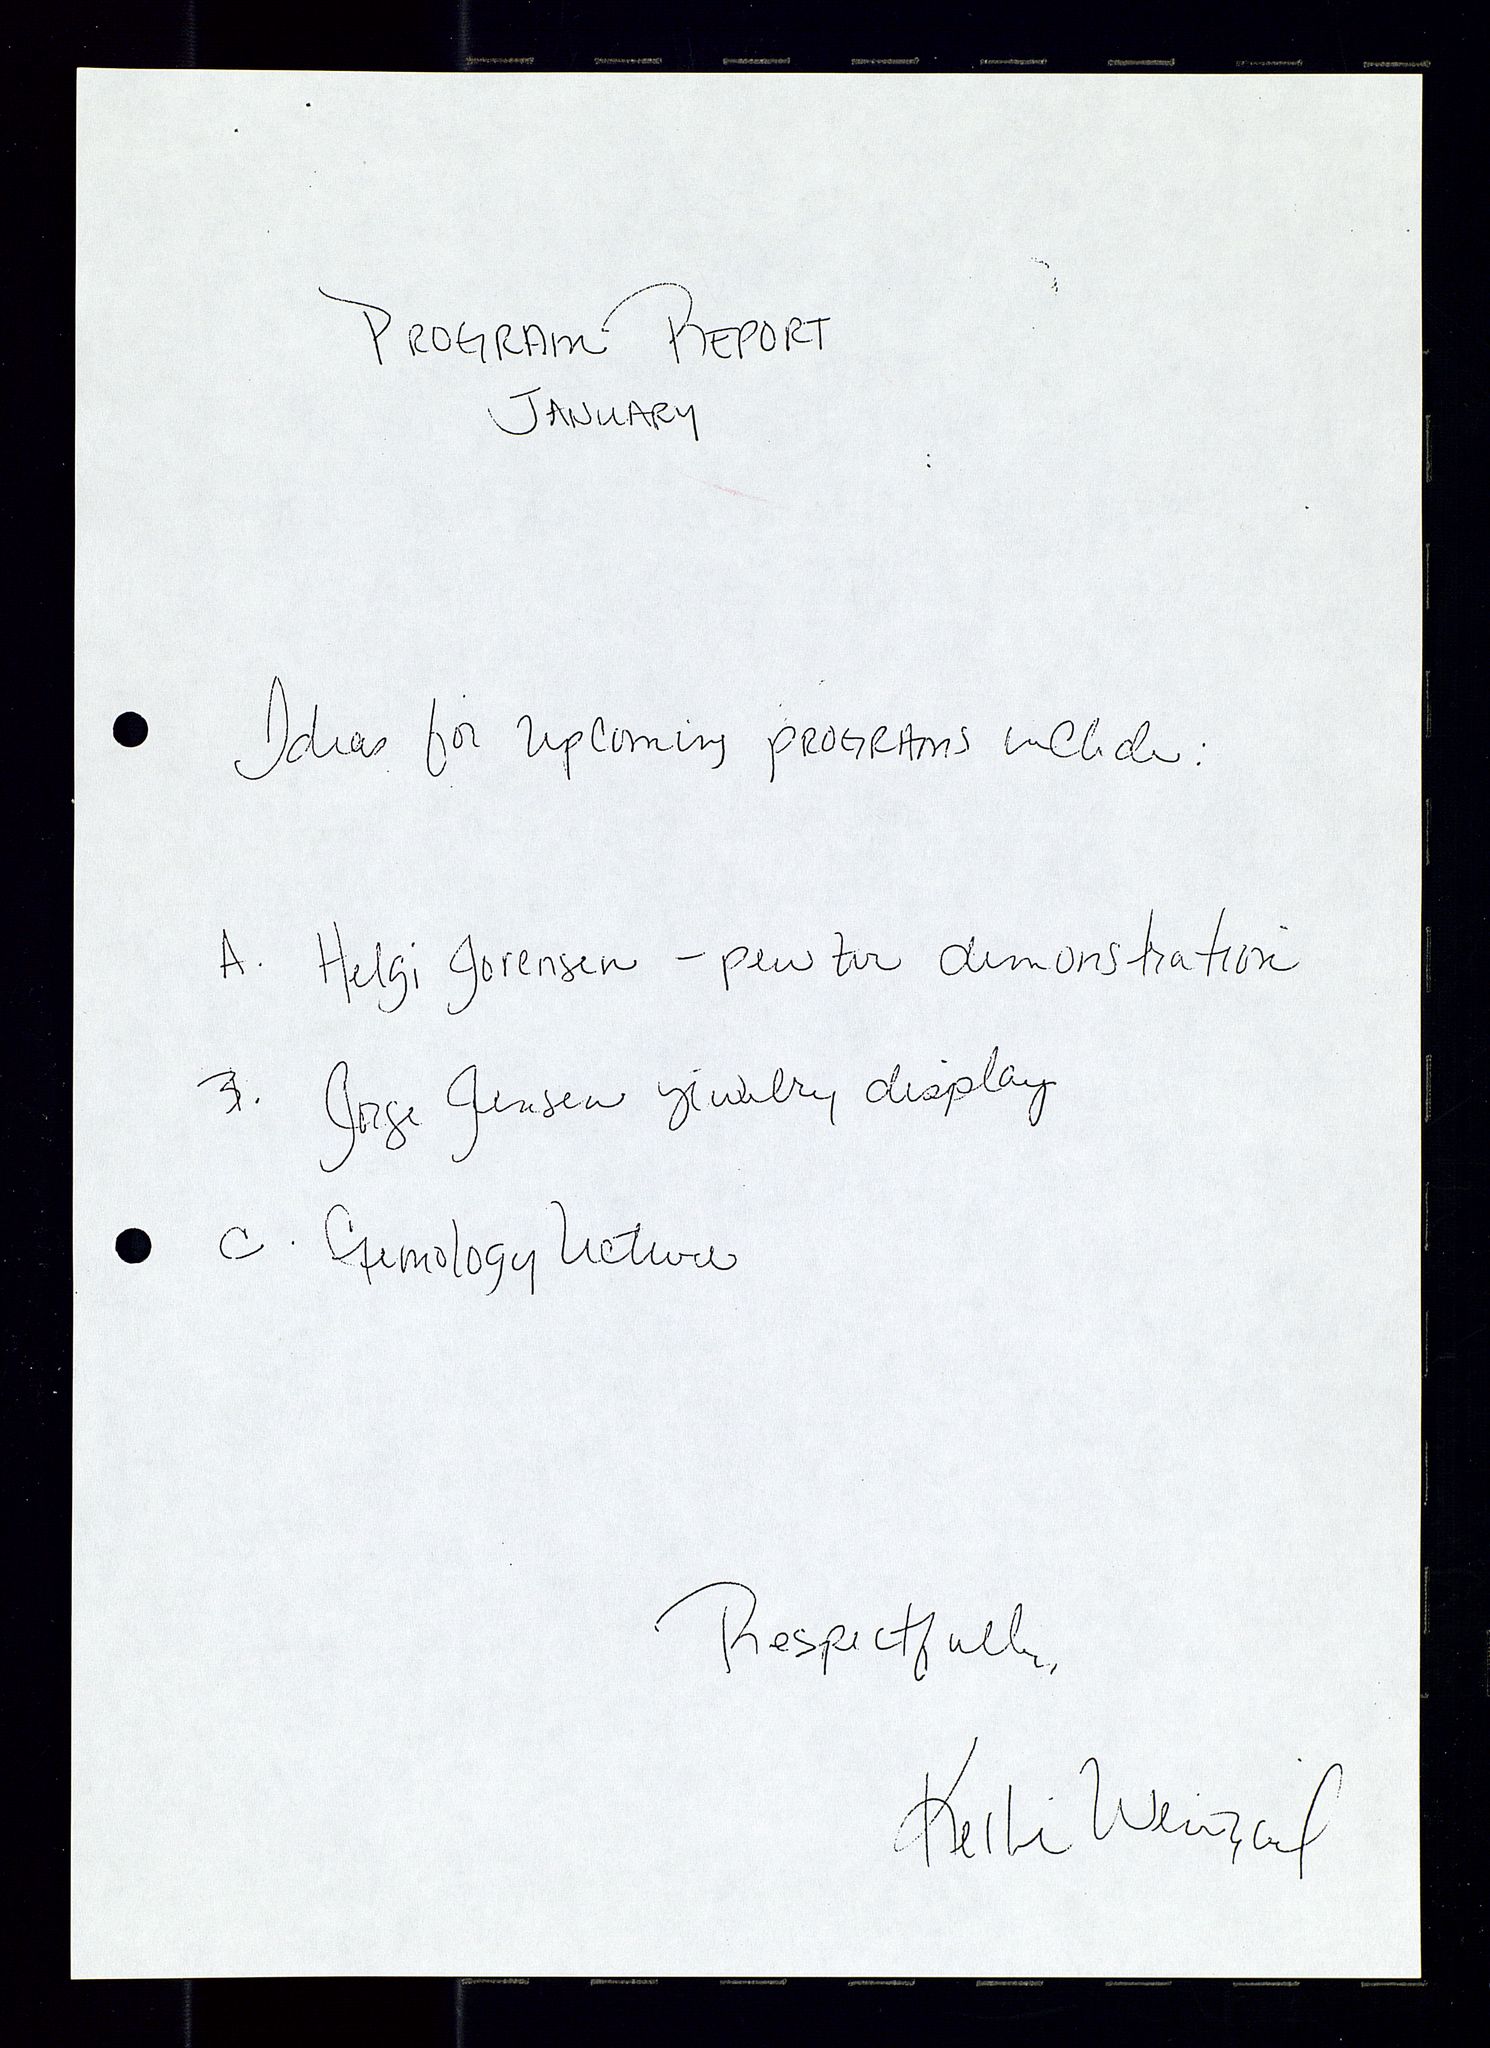 PROGRAM REPORT
JANUARY
Ideas for upcoming PROGRAMS include:
A. Helgi Jorensen - pewter demonstration
B. Jorge Jensen jewelry display
C. Gemology Lecture
Respectfully,